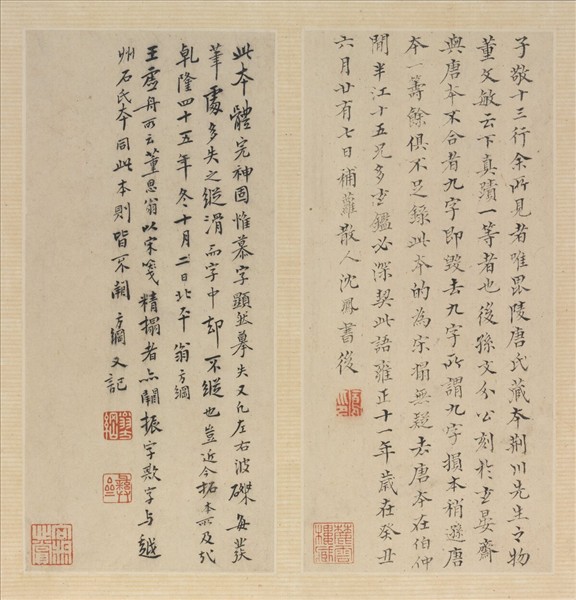 子敬十三行余所見者唯毘陵唐氏藏本荆川先生之物
董文敏云下真蹟一等者也後孫文介公刻於玄晏齋
與唐本不合者九字即毀去九字所謂九字損本稍遜唐
本一籌餘俱不足錄此本的為宋搨無疑去唐本在伯仲
間半江十五兄多玄鑑必深契此語雍正十一年歲在癸丑
六月廿有七日補蘿散人沈鳳書後
此本體完神固惟慕字顯然摹失又凡左右波磔每發
筆處多失之縱滑而字中却不縱也豈近今拓本所及哉
乾隆四十五年冬十月二日北平翁方綱
王虛舟所云董思翁以宋箋精搨者亦闕振字歎字与越
州石氏本同此本則皆不闕方綱又記